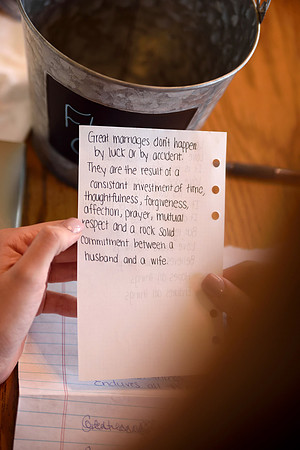 Great marriages don't happen
by luck or by accident.
They are the result of a
consistant investment of time,
thoughtfulness, forgiveness,
affection, prayer, mutual
respect and a rock solid
commitment between a
husband and a wife.